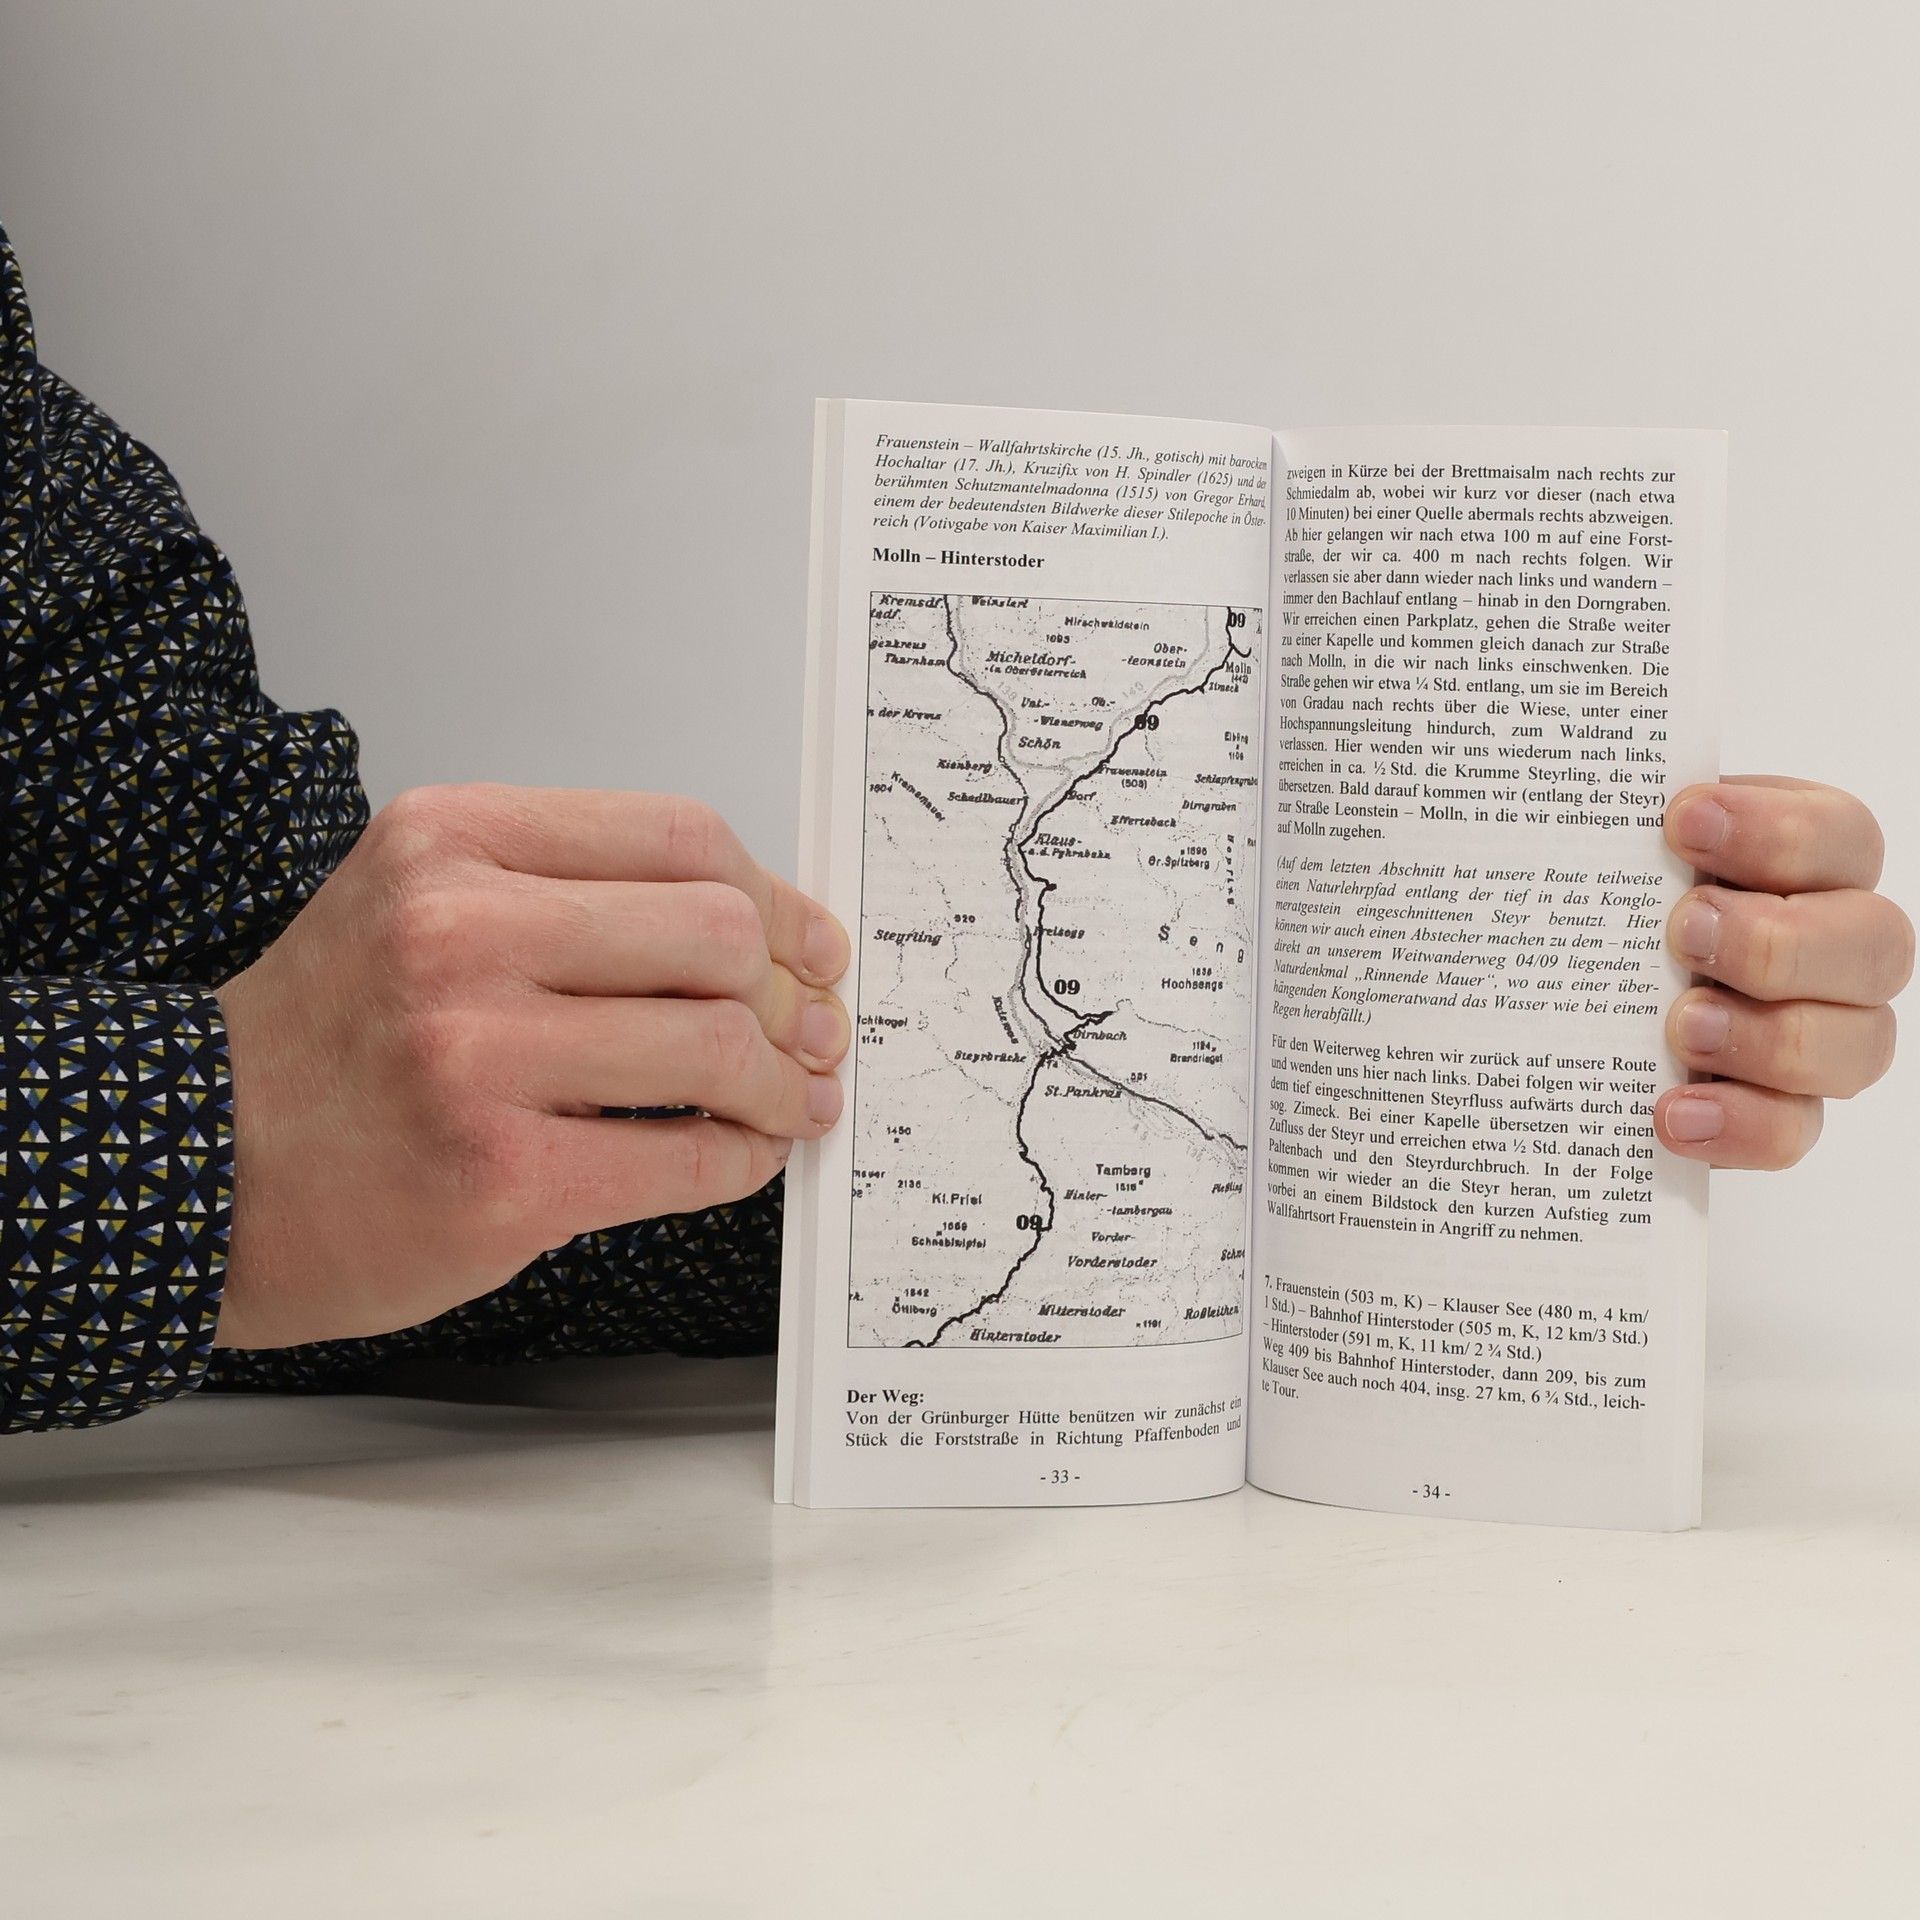 Frauenstein – Wallfahrtskirche (15. Jh., gotisch) mit barockem
Hochaltar (17. Jh.), Kruzifix von H. Spindler (1625) und der
berühmten Schutzmantelmadonna (1515) von Gregor Erhard,
einem der bedeutendsten Bildwerke dieser Stilepoche in Öster-
reich (Votivgabe von Kaiser Maximilian I.).
Molln – Hinterstoder
Kremsdf.
Weinzierl
09
Hirschwaldstein
1093
Thurnham
Micheldorf-
-in Oberösterreich
Ober-
-leonstein
Molln
(442)
Zimeck
n der Krems
Unt.-
Ob.-
-Wienerweg
140
09
Schön
Kienberg
Frauenstein
(503)
1604
Kremsmauer
Schedlbauer
Dorf
Dirngraben
Effertsbach
Klaus-
a.d. Pyhrnbahn
Gr. Spitzberg
920
Steyrling
Preisegg
S e n g
1838
Hochsengs
09
1142
Dirnbach
Steyrbrücke
1184
Brandriegel
St. Pankraz
1450
Tamberg
1516
2136
Kl. Priel
Hinter-
-tambergau
09
1669
Schnablwipfel
Vorder-
Vorderstoder
1842
Öttlberg
Mitterstoder
1191
Roßleithen
Hinterstoder
Der Weg:
Von der Grünburger Hütte benützen wir zunächst ein
Stück die Forststraße in Richtung Pfaffenboden und
- 33 -
zweigen in Kürze bei der Brettmaisalm nach rechts zur
Schmiedalm ab, wobei wir kurz vor dieser (nach etwa
10 Minuten) bei einer Quelle abermals rechts abzweigen.
Ab hier gelangen wir nach etwa 100 m auf eine Forst-
straße, der wir ca. 400 m nach rechts folgen. Wir
verlassen sie aber dann wieder nach links und wandern –
immer den Bachlauf entlang – hinab in den Dorngraben.
Wir erreichen einen Parkplatz, gehen die Straße weiter
zu einer Kapelle und kommen gleich danach zur Straße
nach Molln, in die wir nach links einschwenken. Die
Straße gehen wir etwa ¼ Std. entlang, um sie im Bereich
von Gradau nach rechts über die Wiese, unter einer
Hochspannungsleitung hindurch, zum Waldrand zu
verlassen. Hier wenden wir uns wiederum nach links,
erreichen in ca. ½ Std. die Krumme Steyrling, die wir
übersetzen. Bald darauf kommen wir (entlang der Steyr)
zur Straße Leonstein – Molln, in die wir einbiegen und
auf Molln zugehen.
(Auf dem letzten Abschnitt hat unsere Route teilweise
einen Naturlehrpfad entlang der tief in das Konglo-
meratgestein eingeschnittenen Steyr benutzt. Hier
können wir auch einen Abstecher machen zu dem – nicht
direkt an unserem Weitwanderweg 04/09 liegenden –
Naturdenkmal „Rinnende Mauer“, wo aus einer über-
hängenden Konglomeratwand das Wasser wie bei einem
Regen herabfällt.)
Für den Weiterweg kehren wir zurück auf unsere Route
und wenden uns hier nach links. Dabei folgen wir weiter
dem tief eingeschnittenen Steyrfluss aufwärts durch das
sog. Zimeck. Bei einer Kapelle übersetzen wir einen
Zufluss der Steyr und erreichen etwa ½ Std. danach den
Paltenbach und den Steyrdurchbruch. In der Folge
kommen wir wieder an die Steyr heran, um zuletzt
vorbei an einem Bildstock den kurzen Aufstieg zum
Wallfahrtsort Frauenstein in Angriff zu nehmen.
7. Frauenstein (503 m, K) – Klauser See (480 m, 4 km/
1 Std.) – Bahnhof Hinterstoder (505 m, K, 12 km/3 Std.)
– Hinterstoder (591 m, K, 11 km/ 2 ¾ Std.)
Weg 409 bis Bahnhof Hinterstoder, dann 209, bis zum
Klauser See auch noch 404, insg. 27 km, 6 ¾ Std., leich-
te Tour.
- 34 -